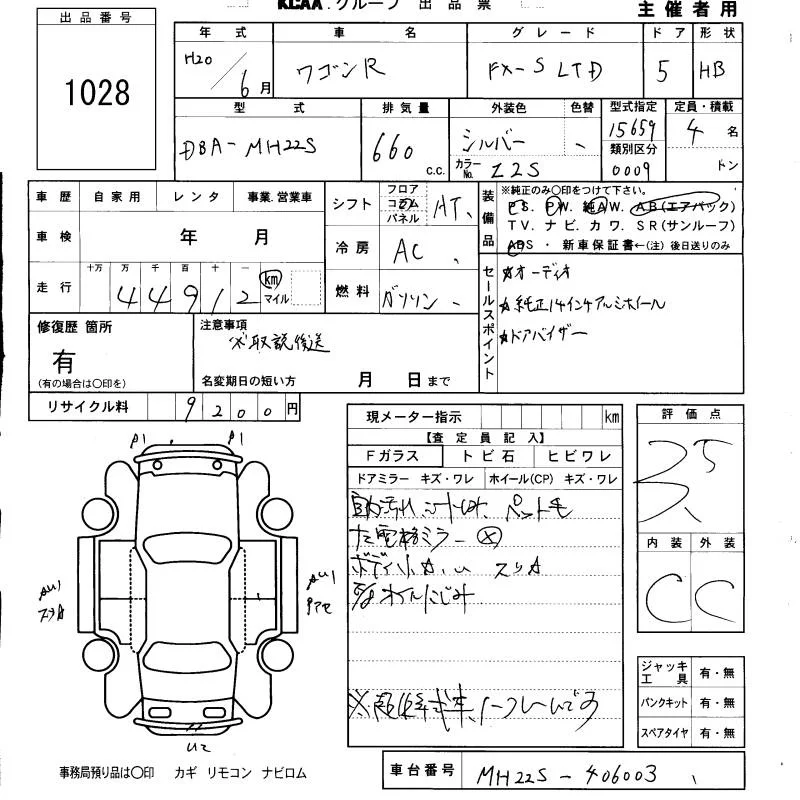 KCAA.グループ 出品票
主催者用
出品番号
1028
年式 車名 グレード ドア 形状
H20/6月 ワゴンR FX-S LTD 5 HB
型式 排気量 外装色 色替 型式指定 定員・積載
DBA-MH22S 660 c.c. シルバー 15659 4名
カラーNo. Z2S 類別区分 0009 トン
車歴 自家用 レンタ 事業.営業車
車検 年 月
走行 十万 万 千 百 十 一
44912 km マイル
シフト フロア コラム パネル AT
冷房 AC
燃料 ガソリン
装備品 ※純正のみ〇印をつけて下さい。
PS. PW. 純AW. AB(エアバック)
TV. ナビ. カワ. SR(サンルーフ)
ABS ・ 新車保証書←(注) 後日送りのみ
セールスポイント
☆オーディオ
☆純正14インチアルミホイール
☆ドアバイザー
修復歴 箇所
有
(有の場合は〇印を)
注意事項
※取説後送
名変期日の短い方 月 日まで
リサイクル料 9200円
現メーター指示 km
【査定員記入】
Fガラス トビ石 ヒビワレ
ドアミラー キズ・ワレ ホイール(CP) キズ・ワレ
ペット毛
電格ミラー
評価点
3.5
内装 外装
C C
ジャッキ工具 有・無
パンクキット 有・無
スペアタイヤ 有・無
P1 P1
AU1
AU1
U2
事務局預り品は〇印 カギ リモコン ナビロム
車台番号 MH22S-406003